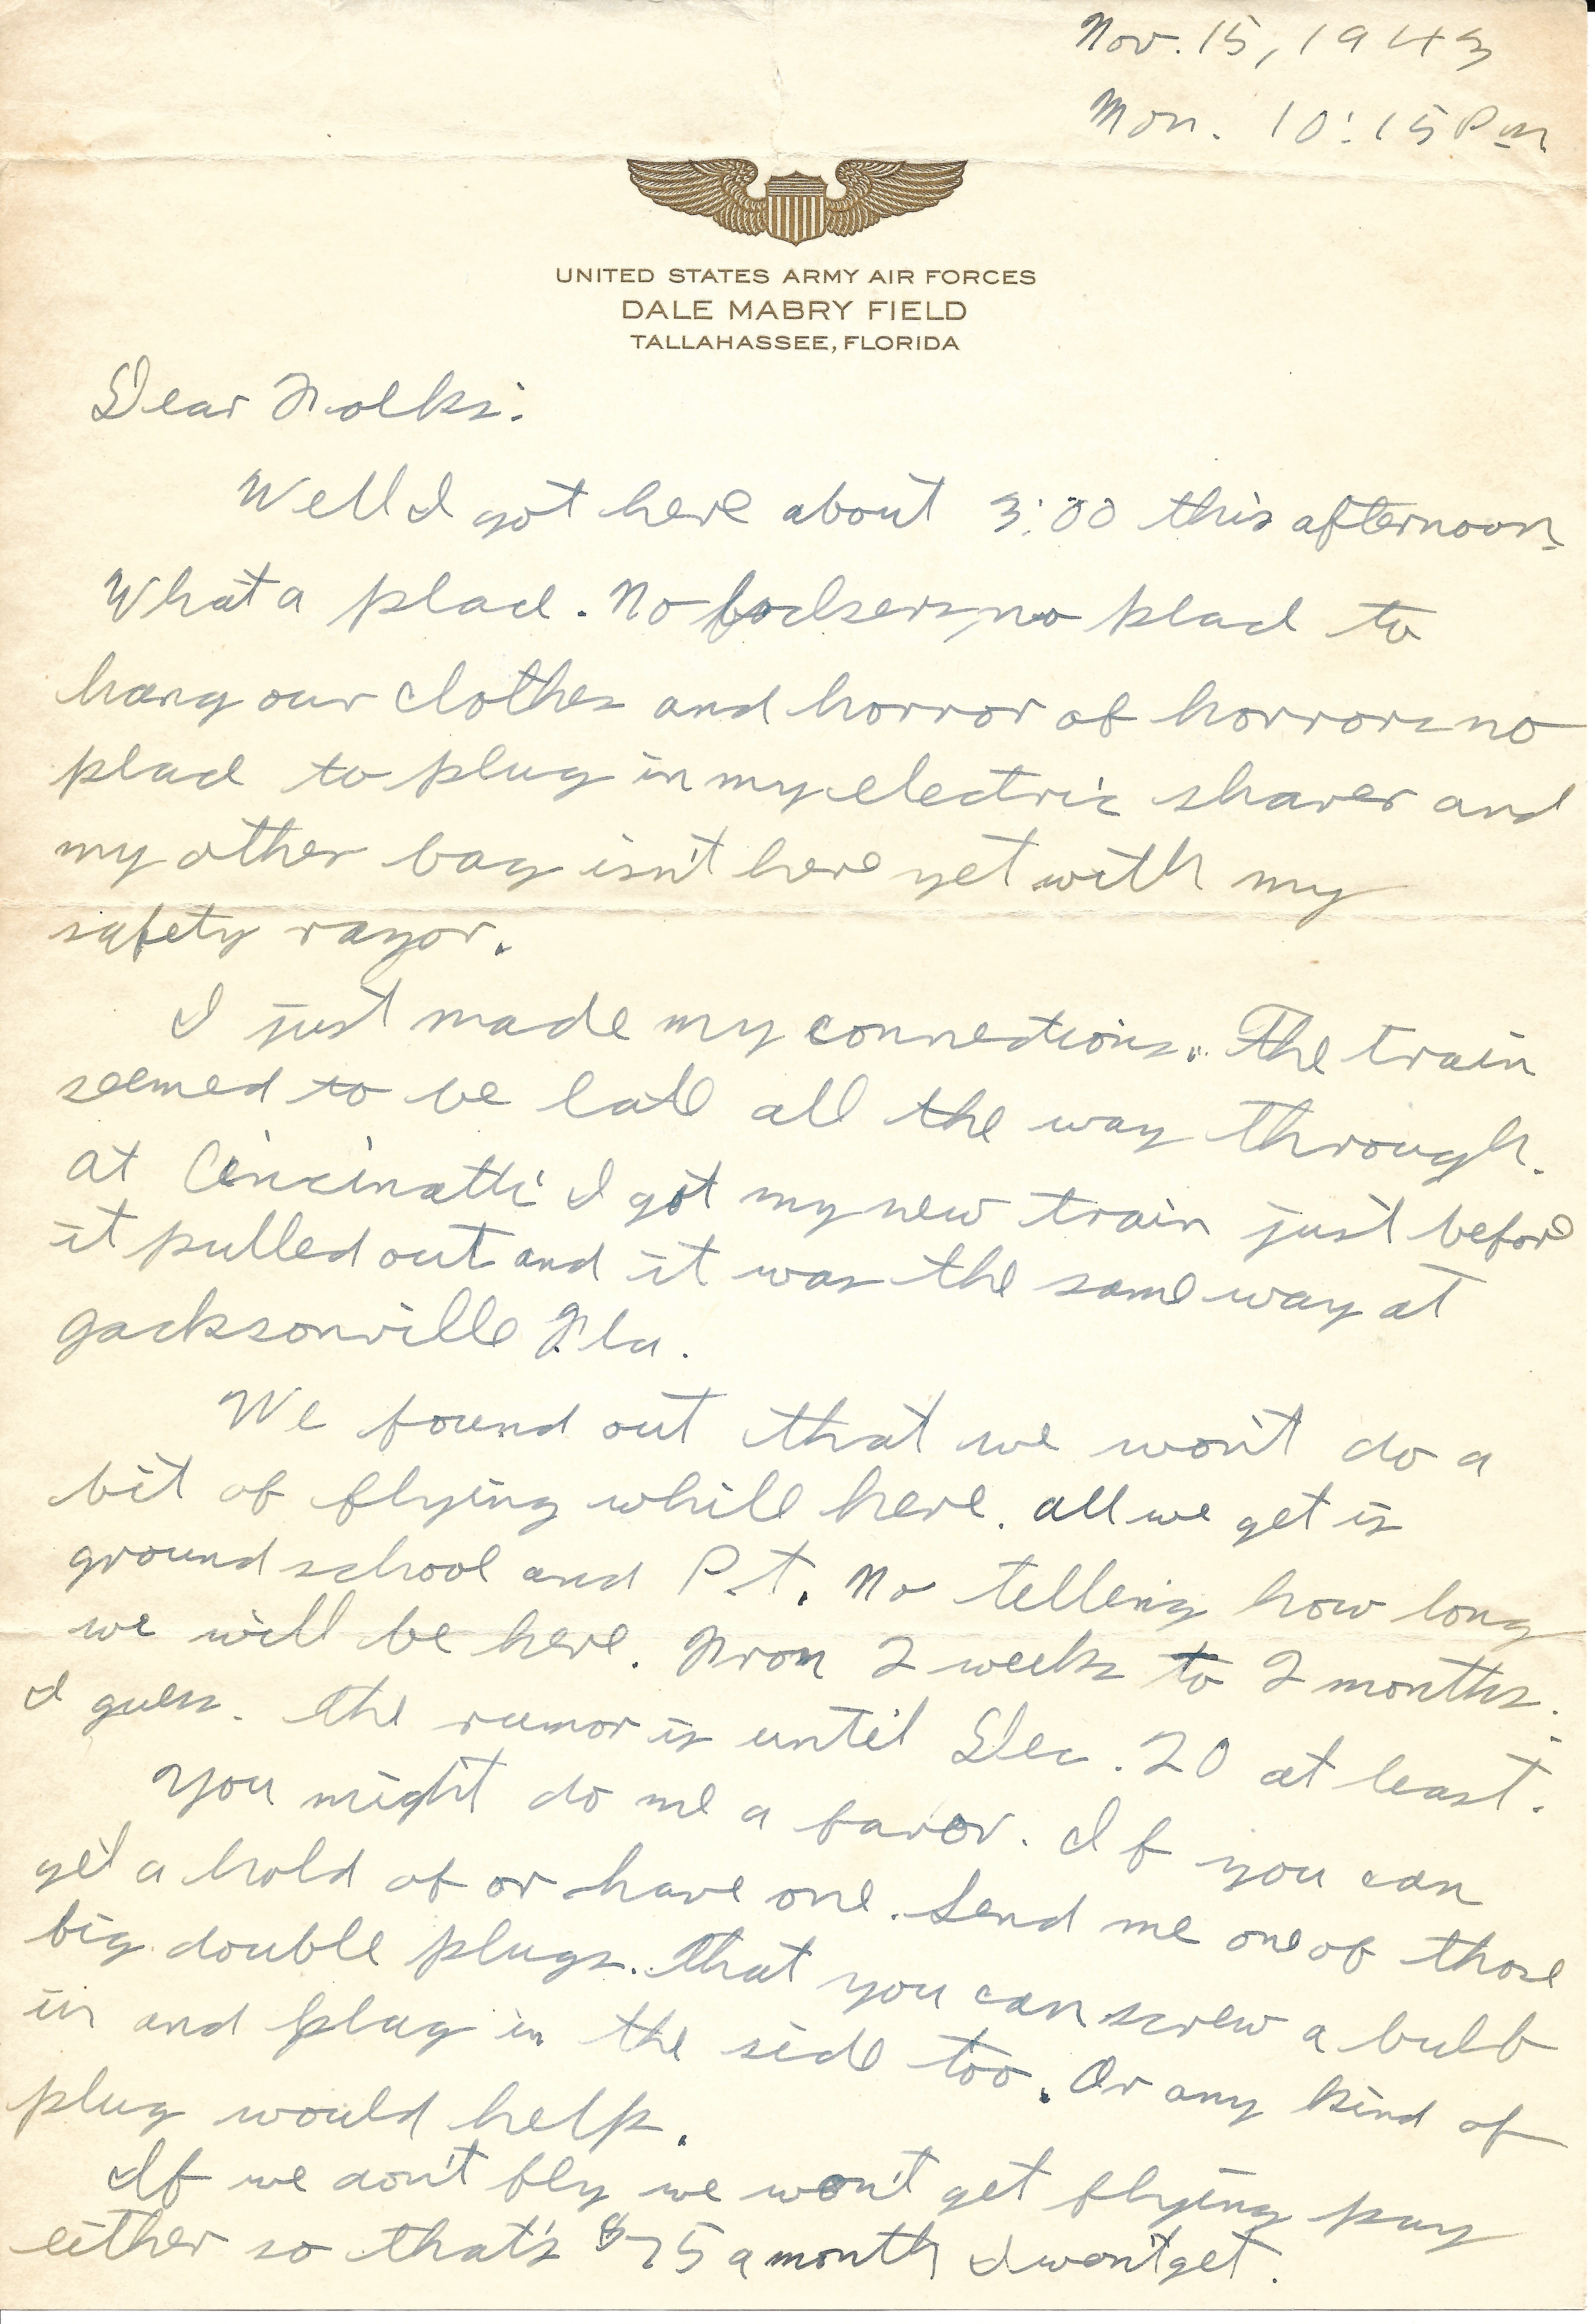 Nov. 15, 1943
Mon. 10:15 Pm
UNITED STATES ARMY AIR FORCES
DALE MABRY FIELD
TALLAHASSEE, FLORIDA
Dear Folks:
Well I got here about 3:00 this afternoon.
What a place. No foodsers, no place to
hang our clothes and horror of horrors no
place to plug in my electric shaver and
my other bag isn't here yet with my
safety razor.
I just made my connections. The train
seemed to be late all the way through.
at Cincinatti I got my new train just before
it pulled out and it was the same way at
Jacksonville Fla.
We found out that we won't do a
bit of flying while here. all we get is
ground school and P.t. No telling how long
we will be here. From 2 weeks to 2 months.
I guess. the rumor is until Dec. 20 at least.
You might do me a favor. If you can
get a hold of or have one. Send me one of those
big double plugs. that you can screw a bulb
in and plug in the side too. Or any kind of
plug would help.
If we don't fly we won't get flying pay
either so that's $75 a month I won't get.